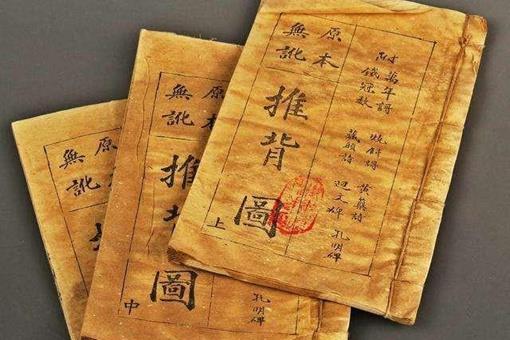 附
萬年謌
鐵冠數
燒餅謌
藏頭詩
黃蘗詩
迴文碑
孔明碑
原本
無訛
推背圖
上
原本
無訛
推
圖
中
孔明碑
原本
無訛